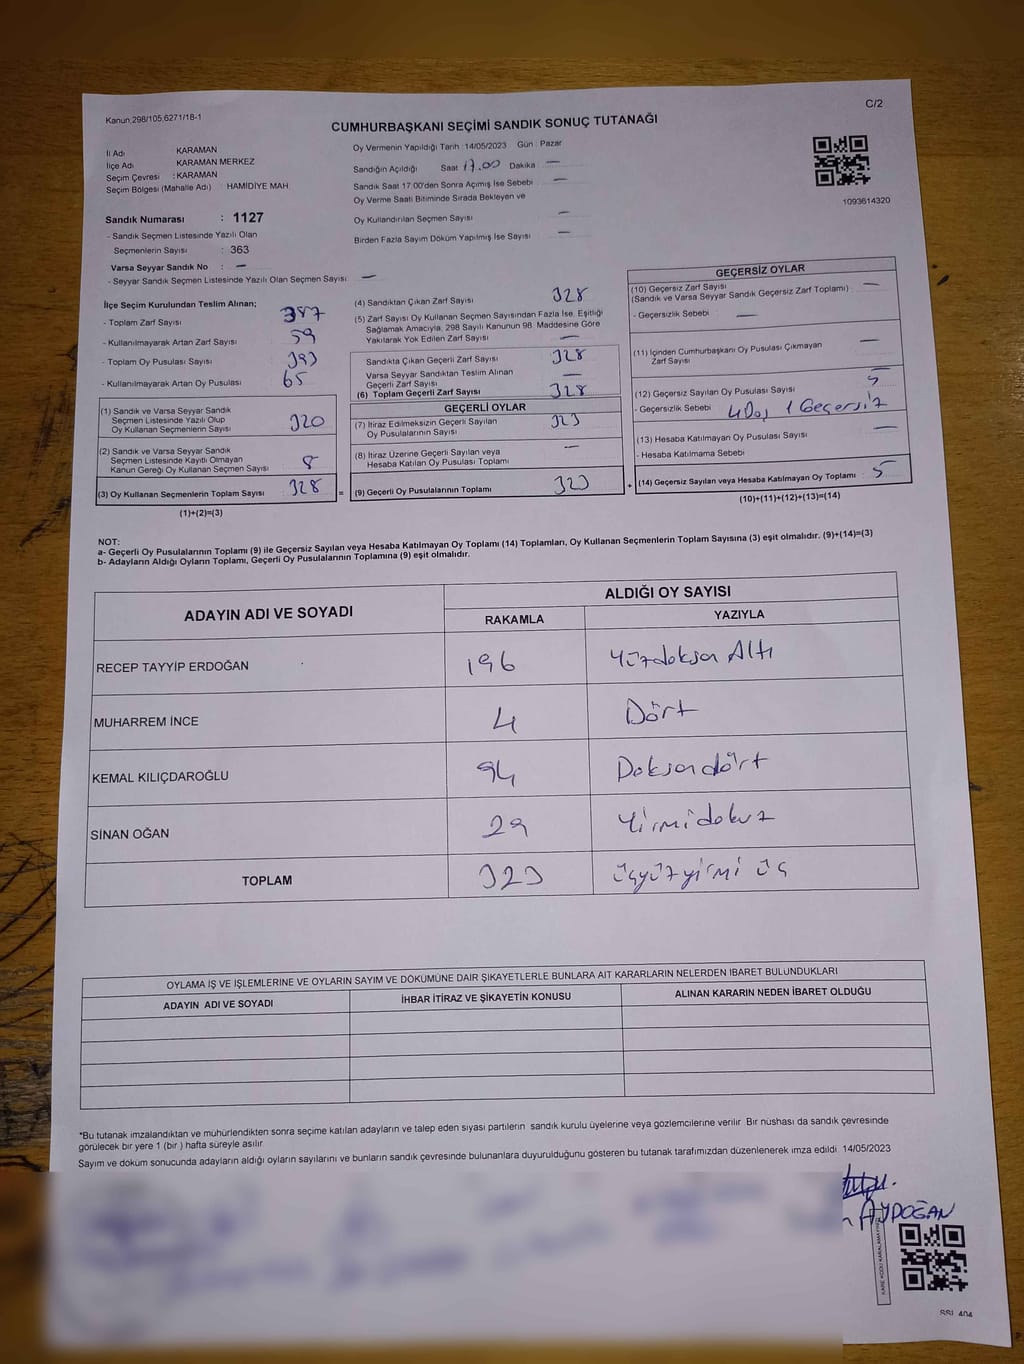 Kanun,298/105,6271/18-1
C/2
CUMHURBAŞKANI SEÇİMİ SANDIK SONUÇ TUTANAĞI
İl Adı KARAMAN
İlçe Adı KARAMAN MERKEZ
Seçim Çevresi : KARAMAN
Seçim Bölgesi (Mahalle Adı) : HAMİDİYE MAH
Sandık Numarası : 1127
- Sandık Seçmen Listesinde Yazılı Olan
Seçmenlerin Sayısı : 363
Varsa Seyyar Sandık No : —
- Seyyar Sandık Seçmen Listesinde Yazılı Olan Seçmen Sayısı : —
Oy Vermenin Yapıldığı Tarih : 14/05/2023 Gün : Pazar
Sandığın Açıldığı Saat 17.00 Dakika —
Sandık Saat 17:00'den Sonra Açımış İse Sebebi —
Oy Verme Saati Bitiminde Sırada Bekleyen ve
Oy Kullandırılan Seçmen Sayısı —
Birden Fazla Sayım Döküm Yapılmış İse Sayısı —
1093614320
İlçe Seçim Kurulundan Teslim Alınan;
- Toplam Zarf Sayısı 387
- Kullanılmayarak Artan Zarf Sayısı 59
- Toplam Oy Pusulası Sayısı 393
- Kullanılmayarak Artan Oy Pusulası 65
(1) Sandık ve Varsa Seyyar Sandık
Seçmen Listesinde Yazılı Olup
Oy Kullanan Seçmenlerin Sayısı 320
(2) Sandık ve Varsa Seyyar Sandık
Seçmen Listesinde Kayıtlı Olmayan
Kanun Gereği Oy Kullanan Seçmen Sayısı 8
(3) Oy Kullanan Seçmenlerin Toplam Sayısı 328
(1)+(2)=(3)
(4) Sandıktan Çıkan Zarf Sayısı 328
(5) Zarf Sayısı Oy Kullanan Seçmen Sayısından Fazla İse, Eşitliği
Sağlamak Amacıyla, 298 Sayılı Kanunun 98. Maddesine Göre
Yakılarak Yok Edilen Zarf Sayısı —
Sandıkta Çıkan Geçerli Zarf Sayısı 328
Varsa Seyyar Sandıktan Teslim Alınan
Geçerli Zarf Sayısı —
(6) Toplam Geçerli Zarf Sayısı 328
GEÇERLİ OYLAR
(7) İtiraz Edilmeksizin Geçerli Sayılan
Oy Pusulalarının Sayısı 323
(8) İtiraz Üzerine Geçerli Sayılan veya
Hesaba Katılan Oy Pusulası Toplamı —
= (9) Geçerli Oy Pusulalarının Toplamı 323
GEÇERSİZ OYLAR
(10) Geçersiz Zarf Sayısı
(Sandık ve Varsa Seyyar Sandık Geçersiz Zarf Toplamı) —
- Geçersizlik Sebebi : —
(11) İçinden Cumhurbaşkanı Oy Pusulası Çıkmayan
Zarf Sayısı —
(12) Geçersiz Sayılan Oy Pusulası Sayısı 5
- Geçersizlik Sebebi 4 Boş 1 Geçersiz
(13) Hesaba Katılmayan Oy Pusulası Sayısı —
- Hesaba Katılmama Sebebi
+ (14) Geçersiz Sayılan veya Hesaba Katılmayan Oy Toplamı : 5
(10)+(11)+(12)+(13)=(14)
NOT:
a- Geçerli Oy Pusulalarının Toplamı (9) ile Geçersiz Sayılan veya Hesaba Katılmayan Oy Toplamı (14) Toplamları, Oy Kullanan Seçmenlerin Toplam Sayısına (3) eşit olmalıdır. (9)+(14)=(3)
b- Adayların Aldığı Oyların Toplamı, Geçerli Oy Pusulalarının Toplamına (9) eşit olmalıdır.
ADAYIN ADI VE SOYADI
ALDIĞI OY SAYISI
RAKAMLA YAZIYLA
RECEP TAYYİP ERDOĞAN 196 Yüzdoksan Altı
MUHARREM İNCE 4 Dört
KEMAL KILIÇDAROĞLU 94 Doksandört
SİNAN OĞAN 29 Yirmidokuz
TOPLAM 323 üçyüzyirmi üç
OYLAMA İŞ VE İŞLEMLERİNE VE OYLARIN SAYIM VE DÖKÜMÜNE DAİR ŞİKAYETLERLE BUNLARA AİT KARARLARIN NELERDEN İBARET BULUNDUKLARI
ADAYIN ADI VE SOYADI İHBAR İTİRAZ VE ŞİKAYETİN KONUSU ALINAN KARARIN NEDEN İBARET OLDUĞU
*Bu tutanak imzalandıktan ve mühürlendikten sonra seçime katılan adayların ve talep eden siyasi partilerin sandık kurulu üyelerine veya gözlemcilerine verilir. Bir nüshası da sandık çevresinde
görülecek bir yere 1 (bir ) hafta süreyle asılır.
Sayım ve döküm sonucunda adayların aldığı oyların sayılarını ve bunların sandık çevresinde bulunanlara duyurulduğunu gösteren bu tutanak tarafımızdan düzenlenerek imza edildi. 14/05/2023
AYDOĞAN
KARE KODU KARALAMAYINIZ